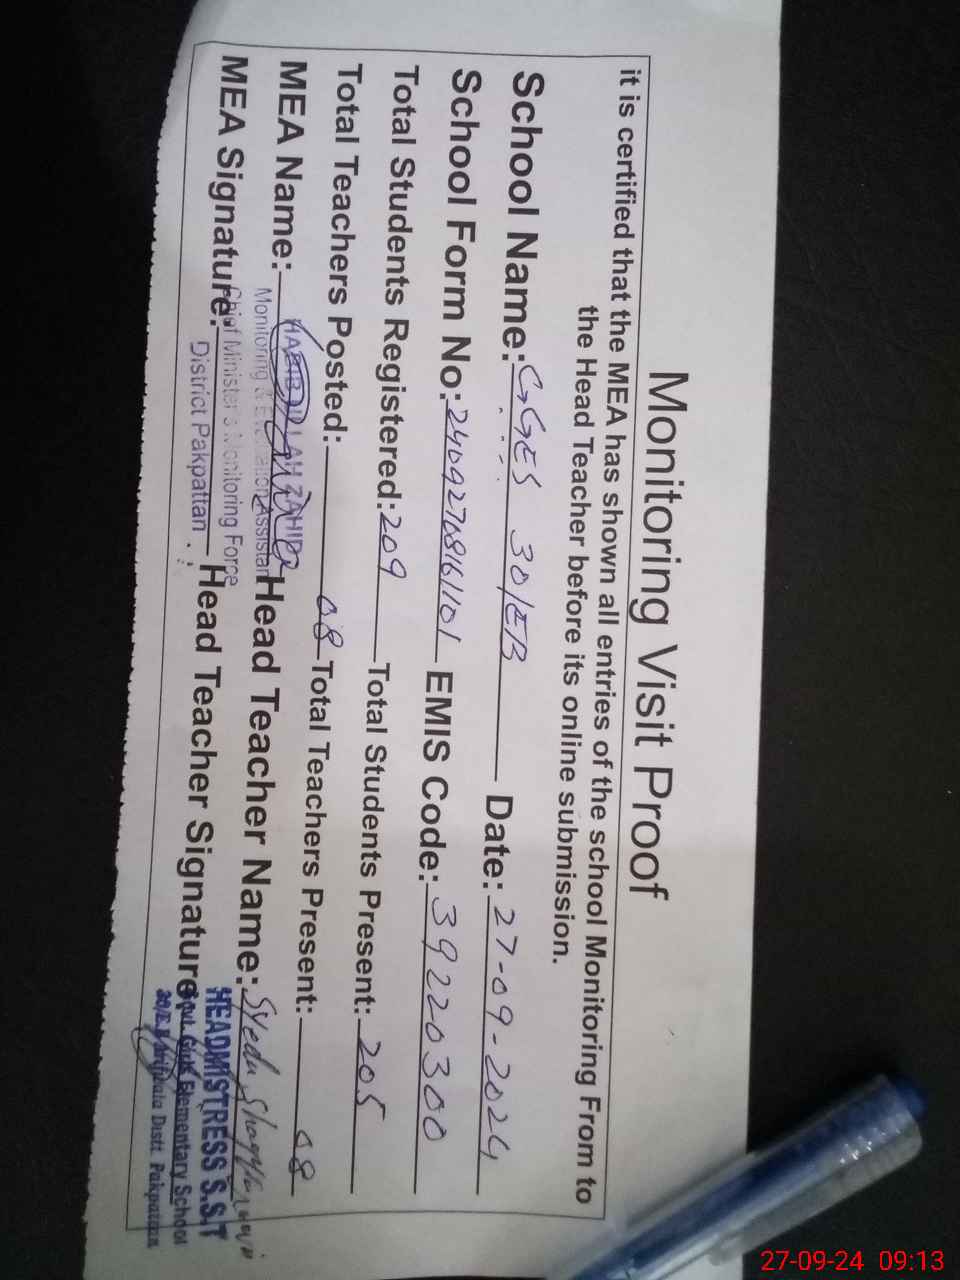 Monitoring Visit Proof
it is certified that the MEA has shown all entries of the school Monitoring From to
the Head Teacher before its online submission.
School Name: GGES 30/EB Date: 27-09-2024
School Form No: 24092768161101 EMIS Code: 39220300
Total Students Registered: 209 Total Students Present: 205
Total Teachers Posted: 08 Total Teachers Present: 08
MEA Name: HABIB ULLAH ZAHID Head Teacher Name: Syeda
Monitoring & Evaluation Assistant
MEA Signature: Head Teacher Signature
Chief Minister's Monitoring Force
District Pakpattan
HEADMISTRESS S.S.T
Govt. Girls Elementary School
30/E.B Arifwala Distt. Pakpattan
27-09-24 09:13